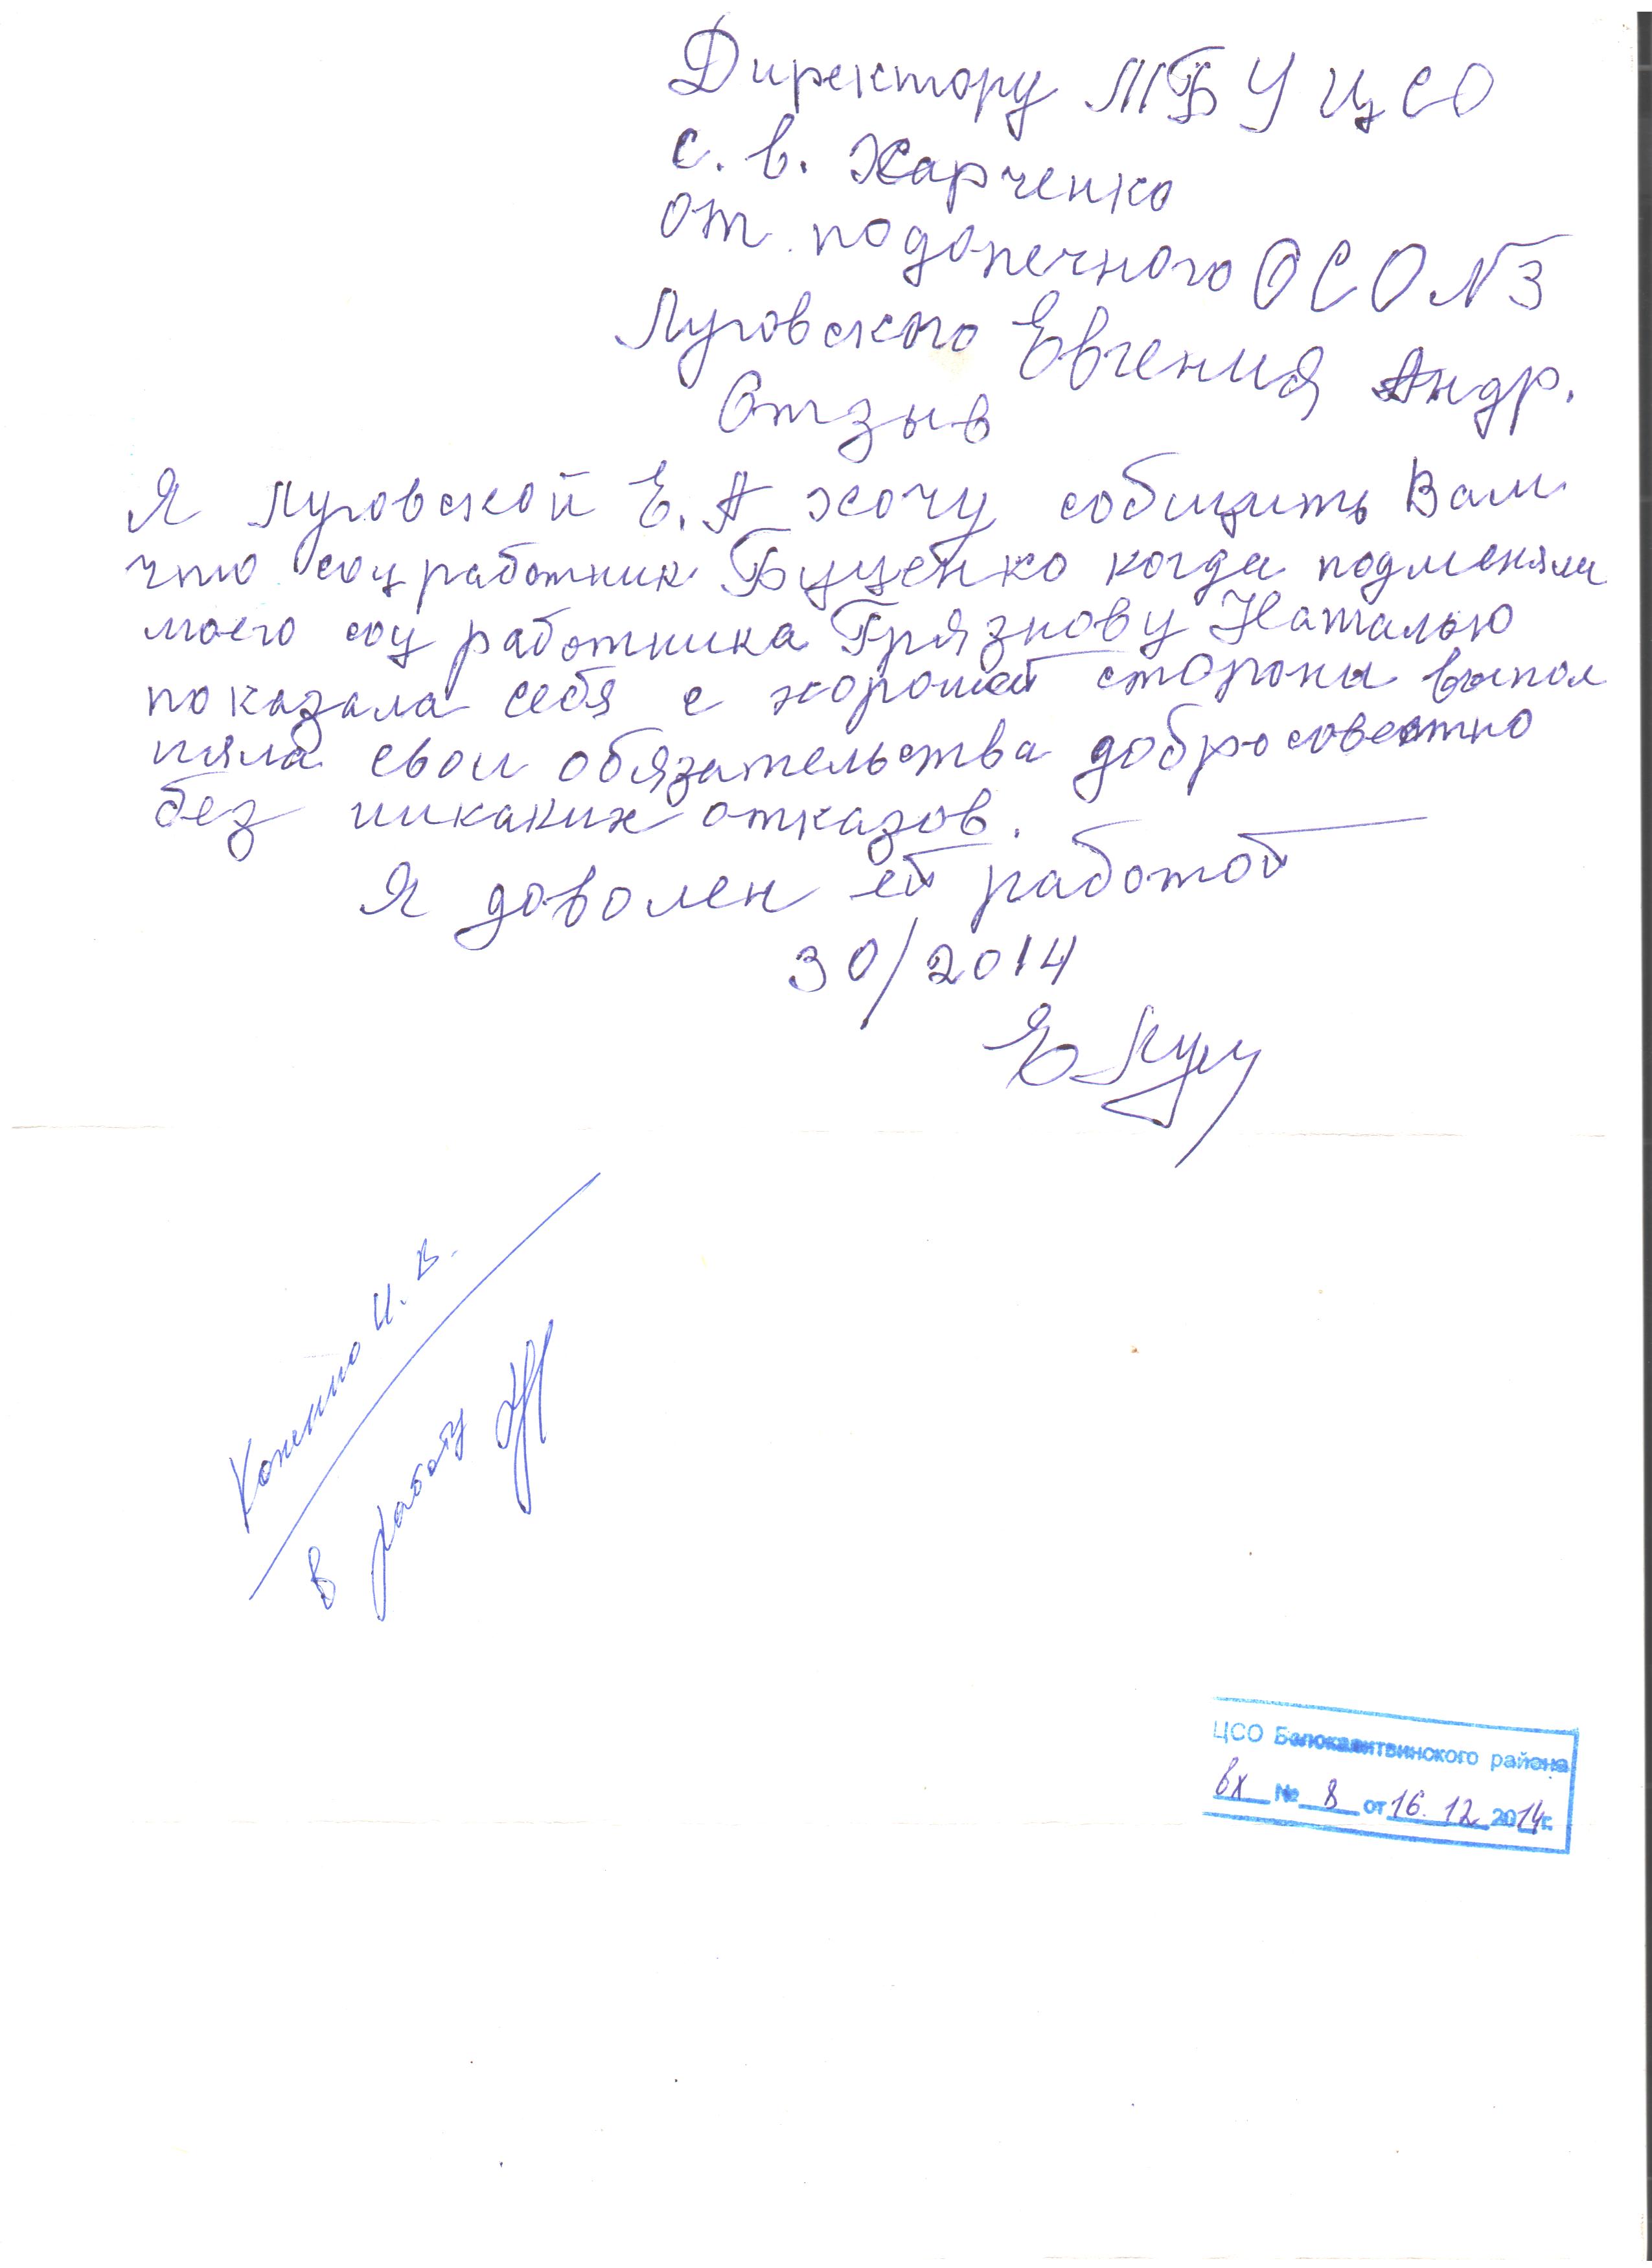 Директору МБУ ЦСО
С. В. Харченко
от подопечного ОСО N3
Луговского Евгения Андр.
Отзыв
Я Луговской Е. А хочу собщить Вам
что соц работник Буценко когда подменяла
моего соц работника Грязнову Наталью
показала себя с хорошей стороны выпол
няла свои обязательства добросовестно
без никаких отказов.
Я доволен ей работой
30/2014
И. В.
В работу
ЦСО Белокалитвинского района
вх № 8 от 16. 12 2014г.